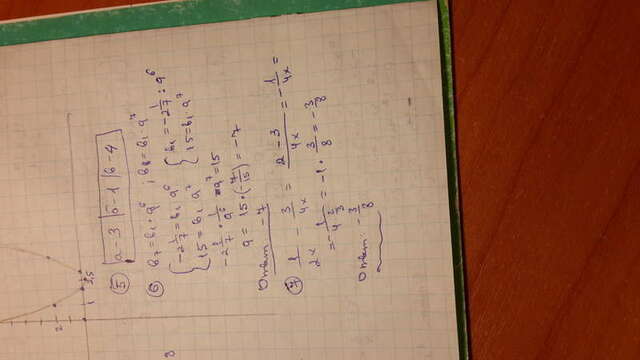 2
1 1,5
3
⑤ а-3 | б-1 | в-4
⑥ b₇ = b₁ · q⁶ ; b₈ = b₁ · q⁷
{ -2 1/7 = b₁ q⁶ { b₁ = -2 1/7 : q⁶
15 = b₁ · q⁷ 15 = b₁ · q⁷
-2 1/7 · 1/q⁶ · q⁷ = 15
q = 15 · (-7/15) = -7
Ответ: -7
⑦ 1/2x - 3/4x = (2-3)/4x = -1/4x =
= -1/(4 · 2/3) = -1 · 3/8 = -3/8
Ответ: -3/8